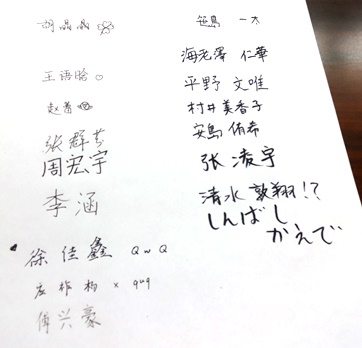 胡晶晶
王语晗
赵茜
张群芳
周宏宇
李涵
徐佳鑫 QwQ
× quq
傅兴豪
笹島 一太
海老澤 仁華
平野 文唯
村井美香子
安島 侑希
张凌宇
清水 敦翔!?
しんばし
かえで